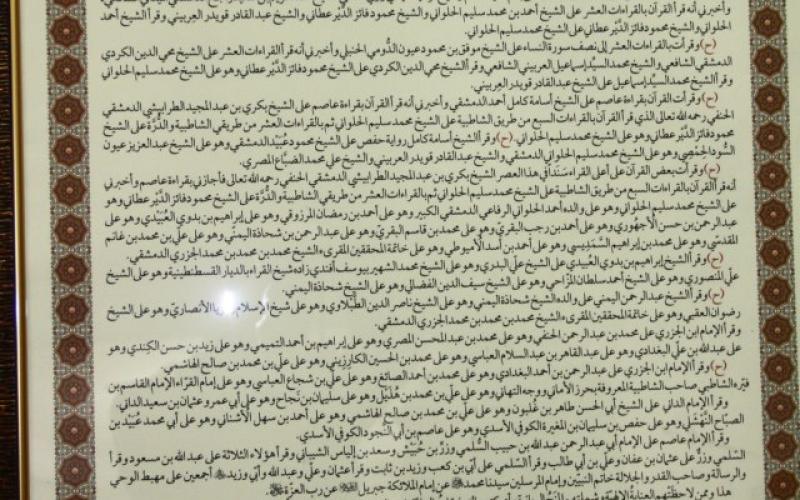 وأخبرني أنه قرأ القرآن بالقراءات العشر على الشيخ أحمد بن محمد سليم الحلواني والشيخ محمود فائز الدَّيْرعطاني والشيخ عبد القادر قويدر العربيني وقرأ الشيخ أحمد
الحلواني والشيخ محمود فائز الدَّيْرعطاني على الشيخ محمد سليم الحلواني.
(ح) وقرأت بالقراءات العشر إلى نصف سورة النساء على الشيخ موفق بن محمود عيون الدُّومي الحنبلي وأخبرني أنه قرأ القرآن بالقراءات العشر على الشيخ محي الدين الكردي
الدمشقي الشافعي والشيخ محمد السيّد إسماعيل العربيني الشافعي وقرأ الشيخ محي الدين الكردي على الشيخ محمود فائز الدَّيْرعطاني وهو على الشيخ محمد سليم الحلواني
وقرأ الشيخ محمد السيّد إسماعيل على الشيخ عبد القادر قويدر العِربيني.
(ح) وقرأت القرآن بقراءة عاصم على الشيخ أسامة كامل أحمد الدمشقي وأخبرني أنه قرأ القرآن بقراءة عاصم على الشيخ بكري بن عبد المجيد الطرابيشي الدمشقي
الحنفي رحمه الله تعالى الذي قرأ القرآن بالقراءات السبع من طريق الشاطبية على الشيخ محمد سليم الحلواني ثم بالقراءات العشر من طريقي الشاطبية والدُّرَّة على الشيخ
محمود فائز الدَّيْرعطاني وهو على الشيخ محمد سليم الحلواني. (ح) وقرأ الشيخ أسامة كامل رواية حفص على الشيخ محمود عُبَيْد الدمشقي وهو على الشيخ عبد العزيز عيون
السُّود الحِمْصي وهو على الشيخ محمد سليم الحلواني الدمشقي والشيخ عبد القادر قويدر العربيني والشيخ علي محمد الضبَّاع المصري.
(ح) وقرأت بعض القرآن على أعلى القراء سَنَداً في هذا العصر الشيخ بكري بن عبد المجيد الطرابيشي الدمشقي الحنفي رحمه الله تعالى فأجازني بقراءة عاصم وأخبرني
أنه قرأ القرآن بالقراءات السبع من طريق الشاطبية على الشيخ محمد سليم الحلواني ثم بالقراءات العشر من طريقي الشاطبية والدُّرَّة على الشيخ محمود فائز الدَّيْرعطاني وهو
على الشيخ محمد سليم الحلواني وهو على والده أحمد الحلواني الرفاعي الدمشقي الكبير وهو على أحمد بن رمضان المرزوقي وهو على إبراهيم بن بدوي العُبَيْدي وهو على
عبد الرحمن بن حسن الأُجهوري وهو على أحمد بن رجب البقري وهو على محمد بن قاسم البقري وهو على عبد الرحمن بن شحاذة اليمني وهو على علي بن محمد بن غانم
المقدسي وهو على محمد بن إبراهيم السَّمَدِيسي وهو على أحمد بن أسد الأميوطي وهو على خاتمة المحققين المقرىء الشيخ محمد بن محمد بن محمد الجزري الدمشقي.
(ح) وقرأ الشيخ إبراهيم بن بدوي العُبيدي على الشيخ علي البدري وهو على الشيخ محمد الشهير بيوسف أفندي زاده شيخ القراء بالديار القسطنطينية وهو على الشيخ
علي المنصوري وهو على الشيخ أحمد سلطان المَزَّاحي وهو على الشيخ سيف الدين الفضالي وهو على الشيخ شحاذة اليمني.
(ح) وقرأ الشيخ عبد الرحمن اليمني على والده الشيخ شحاذة اليمني وهو على الشيخ ناصر الدين الطبلاوي وهو على شيخ الإسلام الأنصاريّ وهو على الشيخ
رضوان العقبي وهو على خاتمة المحققين المقرىء الشيخ محمد بن محمد بن محمد الجزري الدمشقي.
وقرأ الإمام ابن الجزري على محمد بن عبد الرحمن الحنفي وهو على محمد بن عبد المحسن المصري وهو على إبراهيم بن أحمد التميمي وهو على زيد بن حسن الكِندي وهو
على عبد الله بن علي البغدادي وهو على عبد القاهر بن عبد السلام العباسي وهو على محمد بن الحسين الكارَزِيني وهو على علي بن محمد بن صالح الهاشمي.
(ح) وقرأ الإمام ابن الجزري على عبد الرحمن بن أحمد البغدادي وهو على محمد بن أحمد الصائغ وهو على علي بن شجاع العباسي وهو على إمام القرّاء الإمام القاسم بن
فِيرُّه الشاطبي صاحب الشاطبية المعروفة بحرز الأماني ووجه التهاني وهو على علي بن محمد بن هُذَيْل وهو على سليمان بن نَجَاح وهو على أبي عمرو عثمان بن سعيد الداني.
وقرأ الإمام الداني على الشيخ أبي الحسن طاهر بن غَلْبون وهو على علي بن محمد بن صالح الهاشمي وهو على أحمد بن سهل الأُشناني وهو على أبي محمد عُبَيْد بن
الصبَّاح النَّهْشَلي وهو على حفص بن سليمان بن المغيرة الكوفي الأسدي وهو على عاصم بن أبي النجود الكوفي الأسدي.
وقرأ الإمام عاصم على الإمام أبي عبد الرحمن عبد الله بن حبيب السُّلمي وزِرّ بن حُبَيْش وسعد بن إلياس الشيباني وقرأ هؤلاء الثلاثة على عبد الله بن مسعود وقرأ
السلمي وزِرّ على عثمان بن عفان وعلي بن أبي طالب وقرأ السُّلمي على أبي بن كعب وزيد بن ثابت وقرأ عثمان وعلي وعبد الله وأبيّ وزيد أجمعين على مهبط الوحي
والرسالة وصاحب القدر والجلالة خاتم النبيّين وإمام المرسلين سيدنا محمد ﷺ عن إمام الملائكة جبريل عن رب العزّة